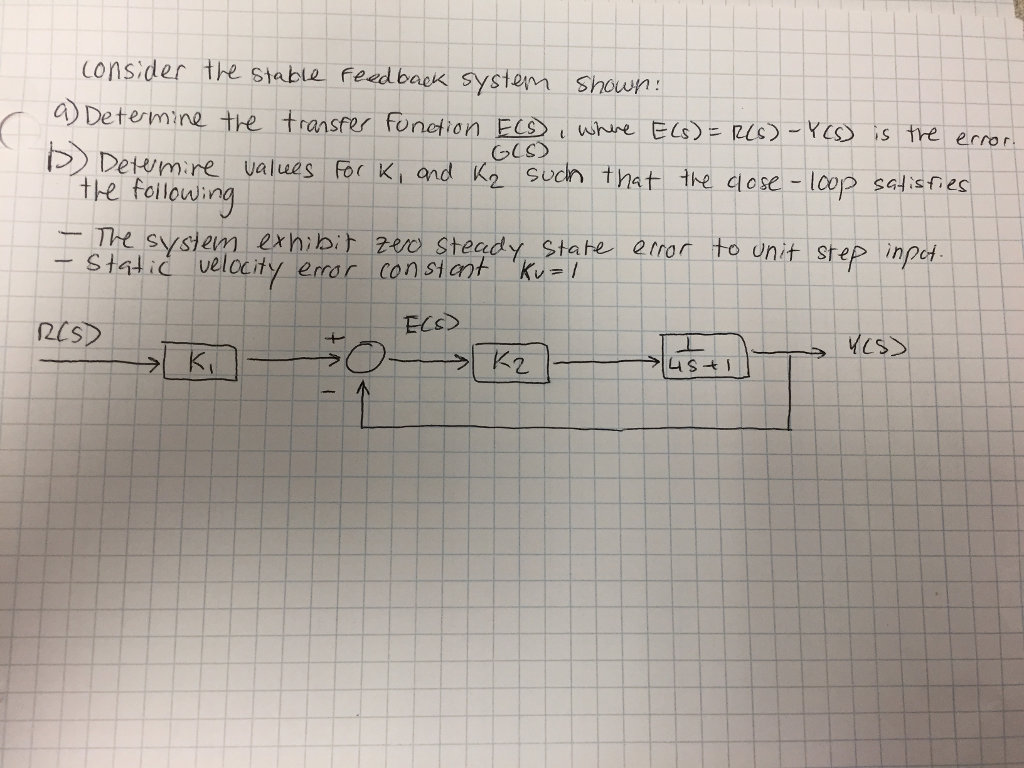 consider the stable Feedback system shown:
a) Determine the transfer function E(S), where E(s) = R(s) - Y(S) is the error.
G(S)
b) Determine values for K1 and K2 such that the close-loop satisfies
the following
- The system exhibit zero steady state error to unit step input.
- Static velocity error constant Kv=1
R(S)
K1
+
-
E(S)
K2
1
4S+1
Y(S)